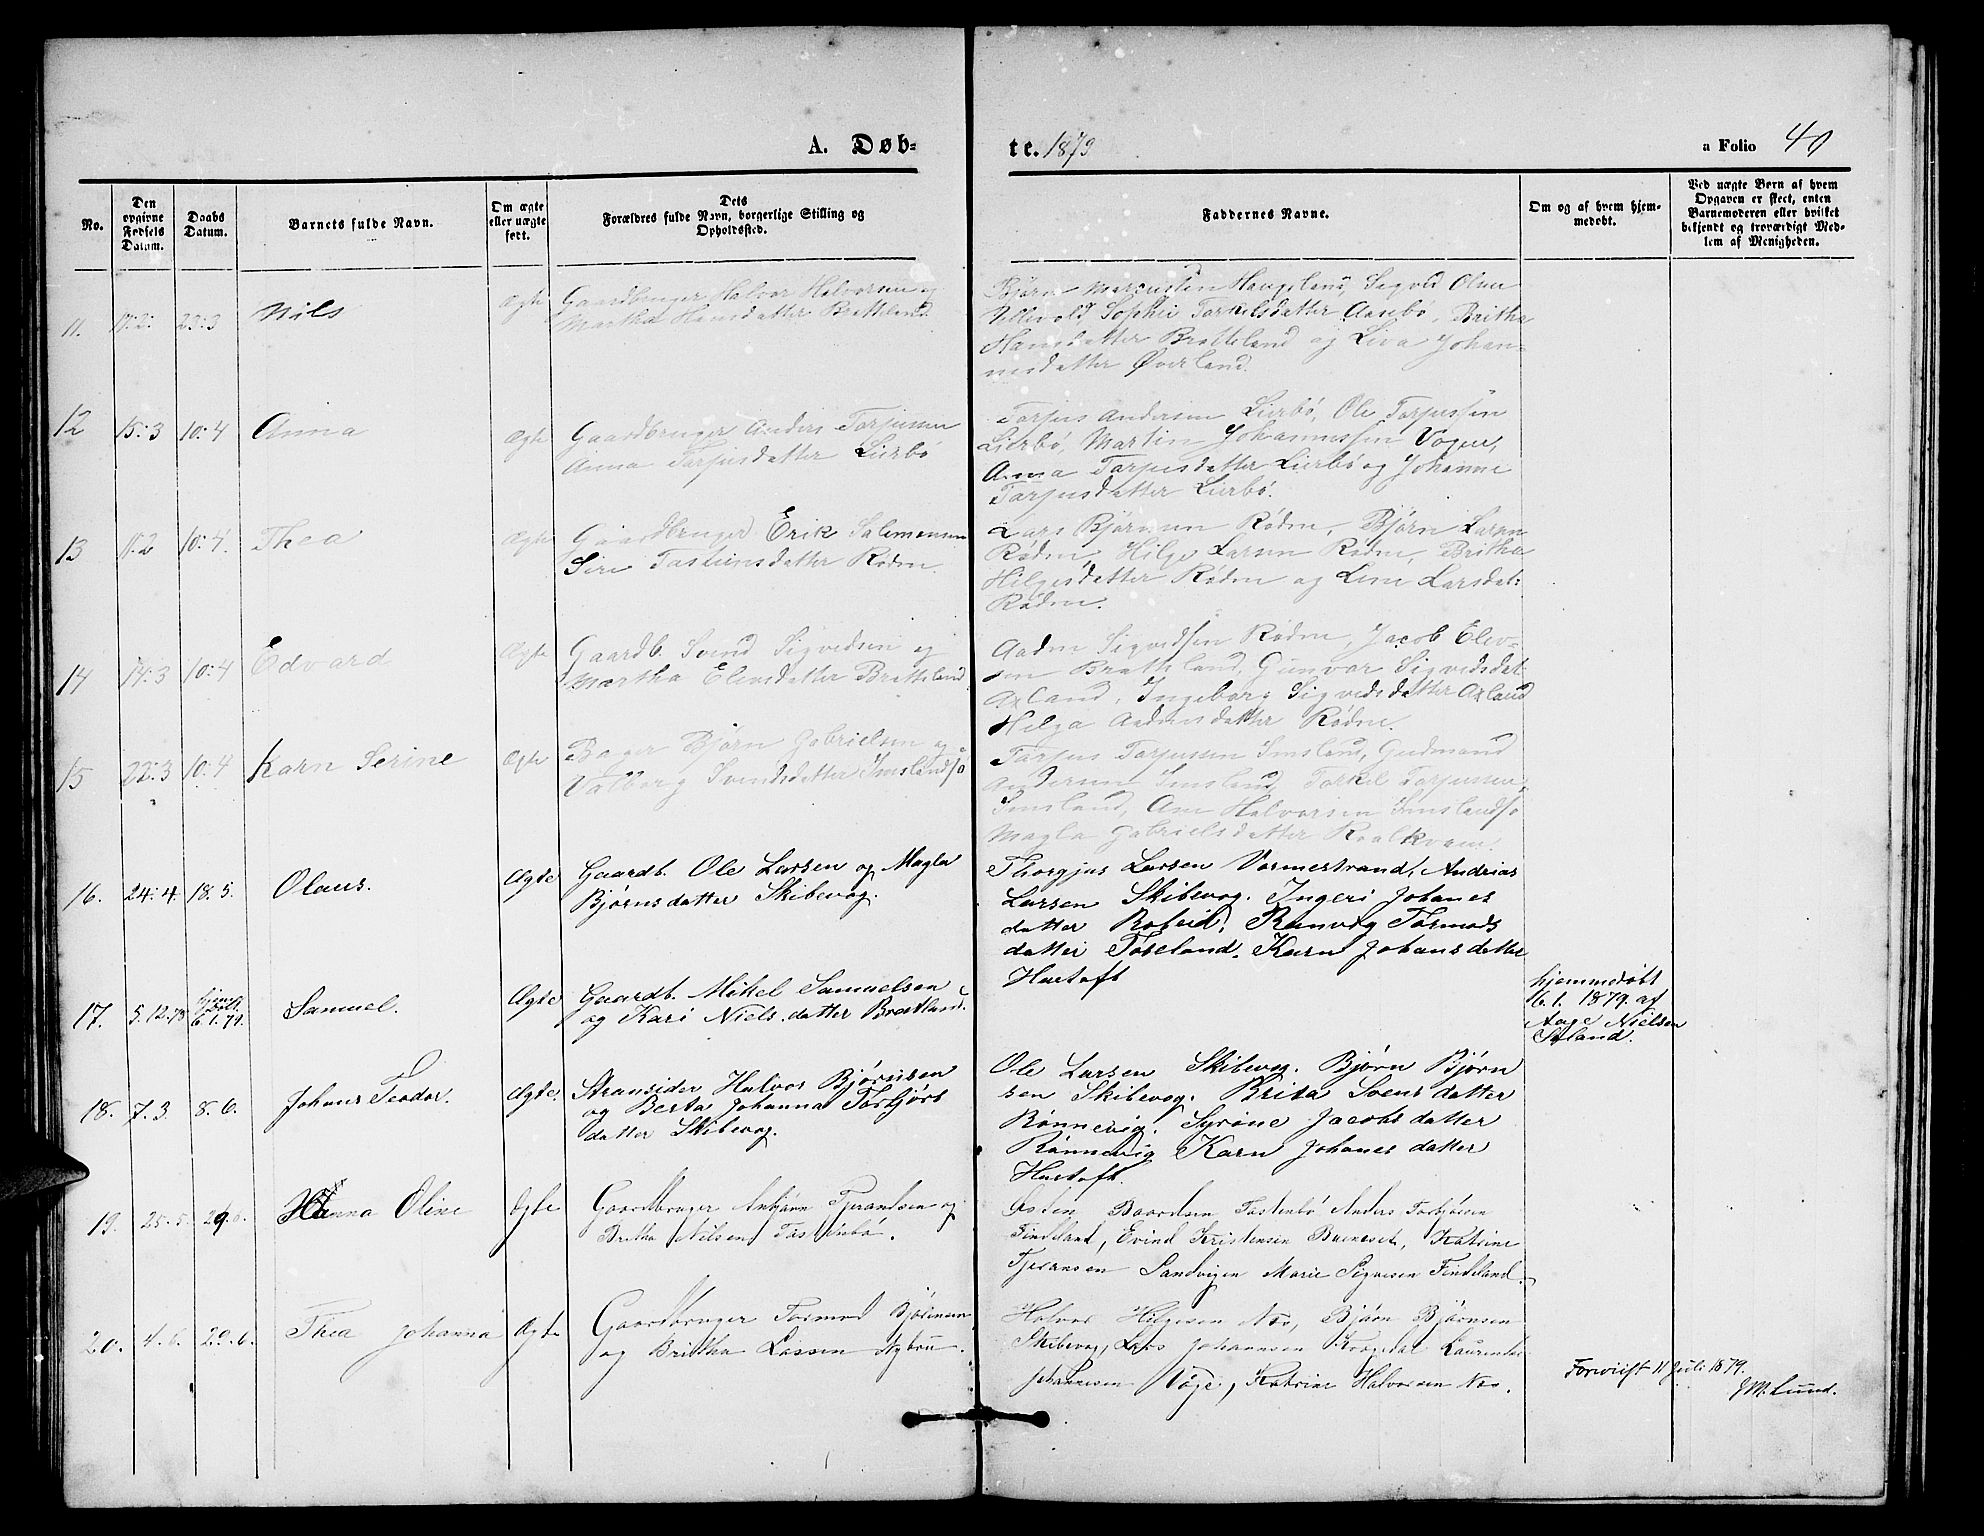 A. Døb-
te. 1879
a Folio 40
No.
Den opgivne Fødsels Datum.
Daabs Datum.
Barnets fulde Navn.
Om ægte eller uægte født.
Dets Forældres fulde Navn, borgerlige Stilling og Opholdssted.
Faddernes Navne.
Om og af hvem hjemmedøbt.
Ved uægte Børn af hvem Opgaven er skeet, enten Barnemoderen eller hvilket bekjendt og troværdigt Medlem af Menigheden.
11. 11:2: 23:3 Nils Ægte
Gaardbruger Halvor Halvorsen og
Martha Hansdatter Bratteland
Bjørn Marcussen Haugeland, Sigvald Olsen
Sophie Torkelsdatter Aasebø, Britha
Hansdatter Bratteland og Liva Johan-
nesdatter Øverland.
12 15:3 10:4 Anna Ægte
Gaardbruger Anders Torjussen
Anna Torjusdatter Lierbö
Torjus Andersen Lierbö, Ole Torjussen
Lierbö, Martin Johannessen Vogen,
Anna Torjusdatter Lierbö og Johanne
Torjusdatter Lierbö.
13 11:2 10:4. Thea Ægte
Gaardbruger Erik Salemonsen
Siri Tostensdatter Rödne.
Lars Bjørnsen Rödne, Bjørn Larsen
Rödne, Hilge Larsen Rödne, Britha
Hilgesdatter Rödne og Line Larsdat:
Rödne.
14 14:3 10:4 Edvard Ægte
Gaardb. Svend Sigvedsen og
Martha Elevsdatter Bratteland.
Aadne Sigvedsen Rödne, Jacob Elev-
sen Bratteland, Gunvor Sigvedsdat:
Axland, Ingeborg Sigvedsdatter Axland
Helga Aadnesdatter Rödne.
15 22:3 10:4 Karn Serine Ægte
Bager Bjørn Gabrielsen og
Valborg Svendsdatter Imslandsjö
Torjus Torjussen Imsland, Gudmund
Andersen Imsland, Torkel Torjussen
Imsland, Halvorsen Imslandsjö
Magla Gabrielsdatter Raalkvam.
16. 24:4. 18:5. Olaus. Ægte
Gaardb. Ole Larsen og Magla
Bjørnsdatter Skibevog.
Thorgjus Larsen Vormestrand, Andreas
Larsen Skibevog. Ingeri Johanes
datter Roteid. Ranveg Tormods
datter Töseland. Karn Johansdatter
Hustoft
17. 5.12.78 6.1.79. Samuel. Ægte
Gaardb. Mikel Samuelsen
og Kari Niels datter Bratland.
hjemmedøbt
6.1. 1879. af
Aage Nielsen
18. 7.3. 8.6. Johans Teodor. Ægte.
Stransider Halvor Bjørnsen
og Berta Johanna Torbjörs
datter Skibevog.
Ole Larsen Skibevog. Bjørn Bjørn
sen Skibevog. Brita Svens datter
Rønnevig. Syrine Jacobs datter
Rønnevig Karn Johanes datter
Hustoft.
19. 25.5. 29.6. Hanna Oline Ægte
Gaardbruger Anbjønn Tjerandsen og
Britha Nilsen Tastenbö.
Østen Baardsen Tastenbö Anders Torbjörsen
Findeland, Evind Kristensen Barneset, Katrine
Tjeransen Sandvigen Marie Sigvesen Findeland.
20. 4.6. 29.6. Thea Johanna Ægte
Gaardbruger Tormod Bjørnsen
og Britha Lassen Nybru.
Halvor Hilgesen Næs, Bjørn Bjørnsen
Skibevog, Lars Johannsen Laurentse
Johannesen Voge, Katrine Halvorsen Næs.
Foreviist 11 Juli 1879.
J.M. Lund.